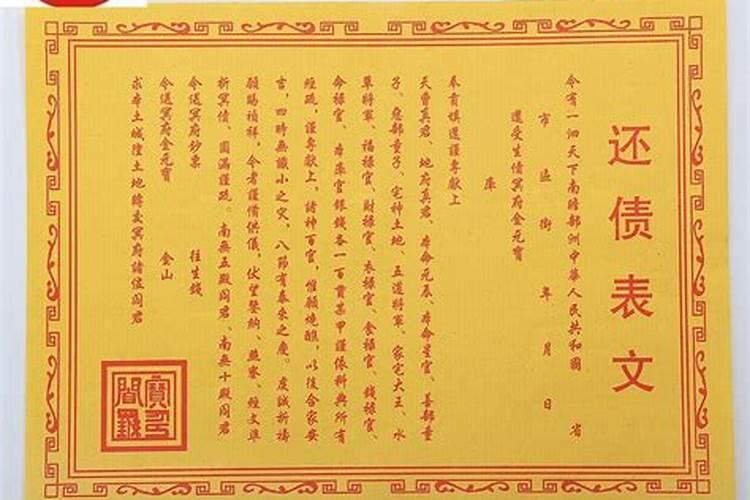 还债表文
今有一泗天下南瞻部洲中華人民共和國 省
市 區 街 年 月 日
還受生債冥府金元寶
庫
奉肯填還謹專献上
天曹真君、地府真君、本命元辰、本命星官、善部童
子、惡部童子、宅神土地、五道將軍、家宅大王、水
草將軍、福禄官、財禄官、衣禄官、食禄官、錢禄官、
命禄官、本庫官銀錢各一百貫某甲謹依科典所有
經疏,謹專献上,諸神百官,惟願燒醮,以後合家安
吉,四時無讖小之灾,八節有泰來之慶。虔誠祈禱
願賜禎祥,今者謹備供儀,伏望鑒納、照察、經文準
折冥債、圆滿謹疏。南無五殿阎君、南無十殿阎君
令送冥府鈔票 往生錢
令送冥府金元寶 金山
求本土城隍土地轉交冥府諸位阎君